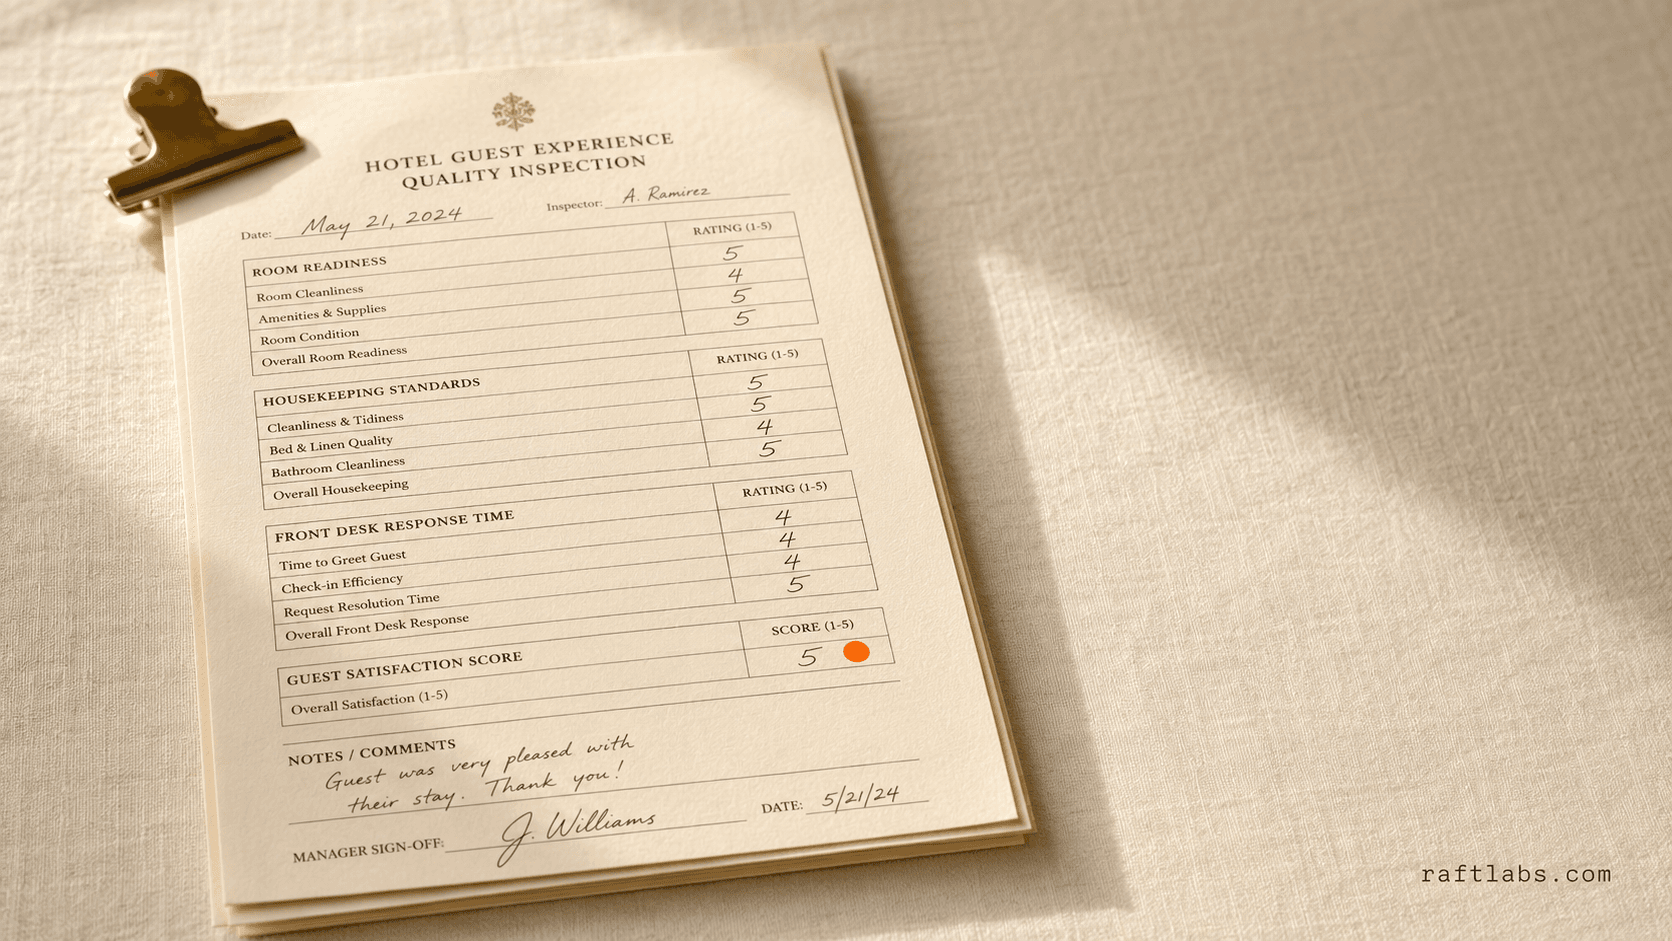 HOTEL GUEST EXPERIENCE
QUALITY INSPECTION
Date: May 21, 2024 Inspector: A. Ramirez
ROOM READINESS RATING (1-5)
Room Cleanliness 5
Amenities & Supplies 4
Room Condition 5
Overall Room Readiness 5
HOUSEKEEPING STANDARDS RATING (1-5)
Cleanliness & Tidiness 5
Bed & Linen Quality 5
Bathroom Cleanliness 4
Overall Housekeeping 5
FRONT DESK RESPONSE TIME RATING (1-5)
Time to Greet Guest 4
Check-in Efficiency 4
Request Resolution Time 4
Overall Front Desk Response 5
GUEST SATISFACTION SCORE SCORE (1-5)
Overall Satisfaction (1-5) 5
NOTES / COMMENTS
Guest was very pleased with
their stay. Thank you!
MANAGER SIGN-OFF: J. Williams DATE: 5/21/24
raftlabs.com